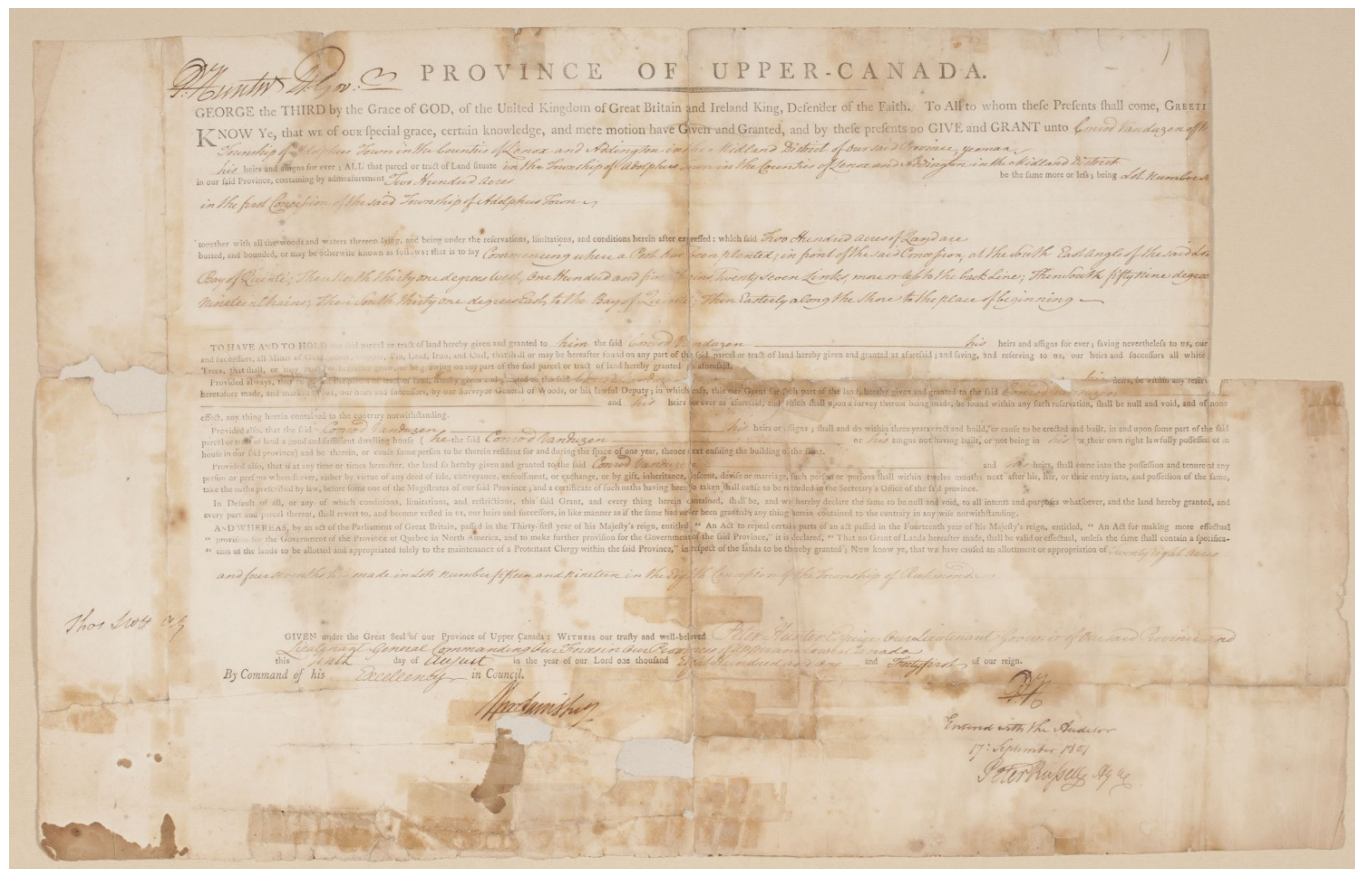 P. Hunter Lt Gov:
PROVINCE OF UPPER-CANADA.
GEORGE the THIRD by the Grace of GOD, of the United Kingdom of Great Britain and Ireland King, Defender of the Faith. To All to whom these Presents shall come, GREETI
KNOW Ye, that WE of OUR special grace, certain knowledge, and mere motion have Given and Granted, and by these presents DO GIVE and GRANT unto Conrod Vanduzen of the
Township of Adolphus Town in the Counties of Lenox and Addington in the Midland District of our said Province, yeoman
his heirs and assigns for ever; ALL that parcel or tract of Land situate in the Township of Adolphus Town in the Counties of Lenox and Addington in the Midland District
in our said Province, containing by admeasurement Two Hundred acres be the same more or less; being Lot Number
in the first Concession of the said Township of Adolphus Town
together with all the woods and waters thereon lying, and being under the reservations, limitations, and conditions herein after expressed; which said Two Hundred acres of Land are
butted, and bounded, or may be otherwise known as follows; that is to say Commencing where a Post has been planted; in front of the said Concession, at the South East Angle of the said Lot
Bay of Quinte; Then North thirty one degrees West, One Hundred and five Chains Twenty seven Links, more or less to the back Line; Then South fifty nine degrees
Nineteen Chains; Then South thirty one degrees East, to the Bay of Quinte; Then Easterly along the Shore to the place of beginning
TO HAVE AND TO HOLD the said parcel or tract of land hereby given and granted to him the said Conrod Vanduzen his heirs and assigns for ever; saving nevertheless to us, our
and successors, all Mines of Gold, Silver, Copper, Tin, Lead, Iron, and Coal, that shall or may be hereafter found on any part of the said parcel or tract of land hereby given and granted as aforesaid; and saving, and reserving to us, our heirs and successors all white
Trees, that shall, or may now or hereafter grow, or be growing on any part of the said parcel or tract of land hereby granted as aforesaid.
Provided always, that no part of the parcel or tract of land, hereby given and granted to the said his heirs, be within any reserv
heretofore made, and marked for us, our heirs and successors, by our Surveyor General of Woods, or his lawful Deputy; in which case, this our Grant for such part of the land hereby given and granted to the said Conrod Vanduzen
and his heirs for ever as aforesaid, and which shall upon a survey thereof being made, be found within any such reservation, shall be null and void, and of none
effect, any thing herein contained to the contrary notwithstanding.
Provided also, that the said Conrod Vanduzen his heirs or assigns; shall and do within three years erect and build, or cause to be erected and built, in and upon some part of the said
parcel or tract of land a good and sufficient dwelling house (he the said Conrod Vanduzen or his assigns not having built, or not being in his or their own right lawfully possessed of a
house in our said province) and be therein, or cause some person to be therein resident for and during the space of one year, thence next ensuing the building of the same.
Provided also, that if at any time or times hereafter, the land so hereby given and granted to the said Conrod Vanduzen and his heirs, shall come into the possession and tenure of any
person or persons whomsoever, either by virtue of any deed of sale, conveyance, enfeoffment, or exchange, or by gift, inheritance, descent, devise or marriage, such person or persons shall within twelve months next after his, her, or their entry into, and possession of the same,
take the oaths prescribed by law, before some one of the Magistrates of our said Province; and a certificate of such oaths having been so taken shall cause to be recorded in the Secretary's Office of the said province.
In Default of all, or any of which conditions, limitations, and restrictions, this said Grant, and every thing herein contained, shall be, and we hereby declare the same to be null and void, to all intent and purposes whatsoever, and the land hereby granted, and
every part and parcel thereof, shall revert to, and become vested in us, our heirs and successors, in like manner as if the same had never been granted; any thing herein contained to the contrary in any wise notwithstanding.
AND WHEREAS, by an act of the Parliament of Great Britain, passed in the Thirty-first year of his Majesty's reign, entitled, "An Act to repeal certain parts of an act passed in the Fourteenth year of his Majesty's reign, entitled, "An Act for making more effectual
"provision for the Government of the Province of Quebec in North America, and to make further provision for the Government of the said Province," it is declared, "That no Grant of Lands hereafter made, shall be valid or effectual, unless the same shall contain a specifica-
"tion of the lands to be allotted and appropriated solely to the maintenance of a Protestant Clergy within the said Province," in respect of the lands to be thereby granted; Now know ye, that we have caused an allotment or appropriation of Twenty eight acres
and four sevenths to be made in Lots Number fifteen and Nineteen in the Eighth Concession of the Township of Richmond
Thos Scott A.G
GIVEN under the Great Seal of our Province of Upper Canada; WITNESS our trusty and well-beloved Peter Hunter Esquire Our Lieutenant Governor of Our said Province and
Lieutenant General Commanding Our Forces in Our Provinces of Upper and Lower Canada
this day of August in the year of our Lord one thousand Eight Hundred and one and Forty first of our reign.
By Command of his Excellency in Council.
P.H
Entered with the Auditor
17: September 1801
Peter Russell